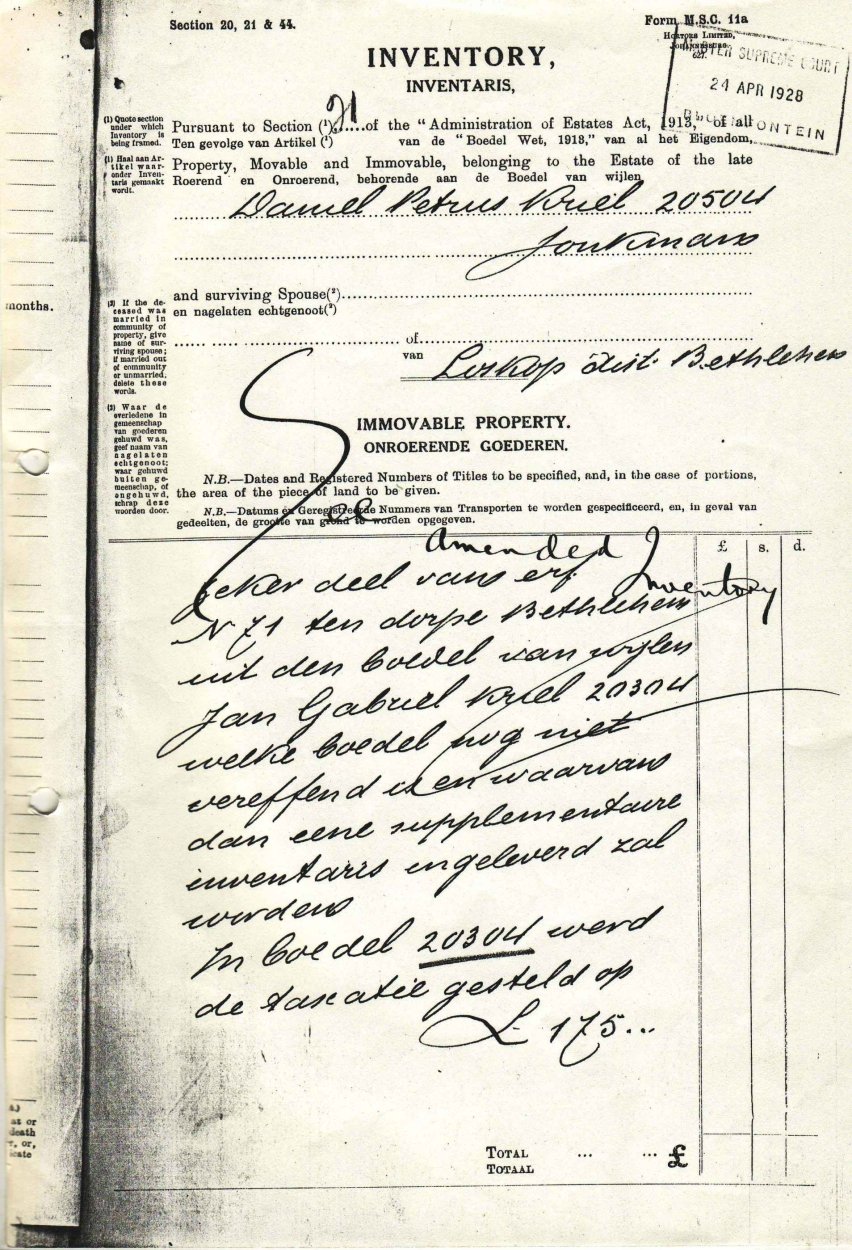 Section 20, 21 & 44.
Form M.S.C. 11a
Hortors Limited,
Johannesburg.
627.
MASTER SUPREME COURT
24 APR 1928
BLOEMFONTEIN
INVENTORY,
INVENTARIS,
(1) Quote section
under which
Inventory is
being framed.
(1) Haal aan Ar-
tikel waar-
onder Inven-
taris gemaakt
wordt.
Pursuant to Section (¹) 21 of the "Administration of Estates Act, 1913," of all
Ten gevolge van Artikel (¹) van de "Boedel Wet, 1913," van al het Eigendom,
Property, Movable and Immovable, belonging to the Estate of the late
Roerend en Onroerend, behorende aan de Boedel van wijlen
Daniel Petrus Kriel 20504
Jonkman
months.
(2) If the de-
ceased was
married in
community of
property, give
name of sur-
viving spouse;
if married out
of community
or unmarried,
delete these
words.
(2) Waar de
overledene in
gemeenschap
van goederen
gehuwd was,
geef naam van
nagelaten
echtgenoot;
waar gehuwd
buiten ge-
meenschap, of
ongehuwd,
schrap deze
woorden door.
and surviving Spouse(²)
en nagelaten echtgenoot(²)
of
van
Loskop dist. Bethlehem
IMMOVABLE PROPERTY.
ONROERENDE GOEDEREN.
N.B.—Dates and Registered Numbers of Titles to be specified, and, in the case of portions,
the area of the piece of land to be given.
N.B.—Datums en Geregistreerde Nummers van Transporten te worden gespecificeerd, en, in geval van
gedeelten, de grootte van grond te worden opgegeven.
£ s. d.
See amended Inventory
Zeker deel van erf
N 71 ten dorpe Bethlehem
uit den boedel van wijlen
Jan Gabriel Kriel 20304
welke boedel nog niet
vereffend is en waarvan
dan eene supplementaire
inventaris ingeleverd zal
worden
In boedel 20304 werd
de taxatie gesteld op
£ 175...
as or
death
r, or,
icate
Total ... ... £
Totaal